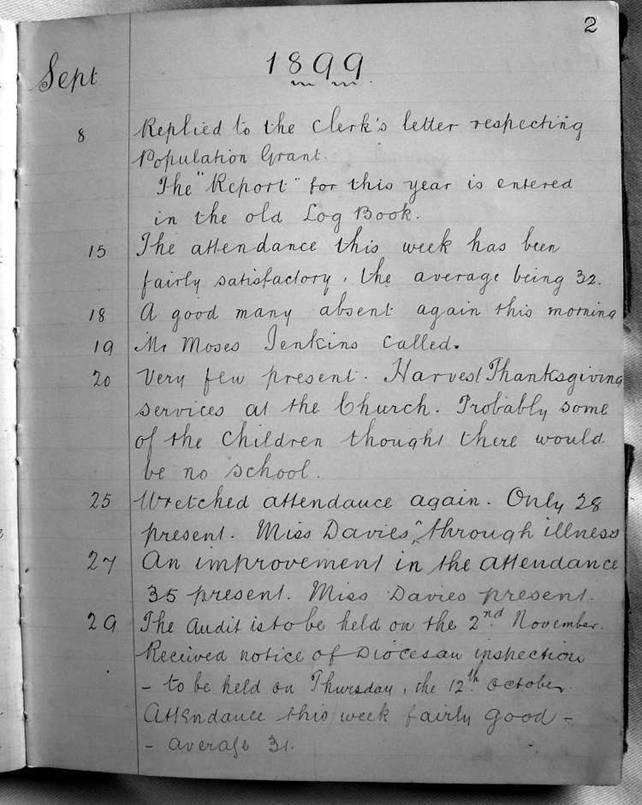 2
Sept 1899
8 Replied to the Clerk's letter respecting
Population Grant.
The "Report" for this year is entered
in the old Log Book.
15 The attendance this week has been
fairly satisfactory, the average being 32.
18 A good many absent again this morning
19 Mr Moses Jenkins called.
20 Very few present. Harvest Thanksgiving
services at the Church. Probably some
of the children thought there would
be no school.
25 Wretched attendance again. Only 28
present. Miss Davies " through illness
27 An improvement in the attendance
35 present. Miss Davies present.
29 The Audit is to be held on the 2nd November.
Received notice of Diocesan inspection
- to be held on Thursday, the 12th October
Attendance this week fairly good -
- average 31.